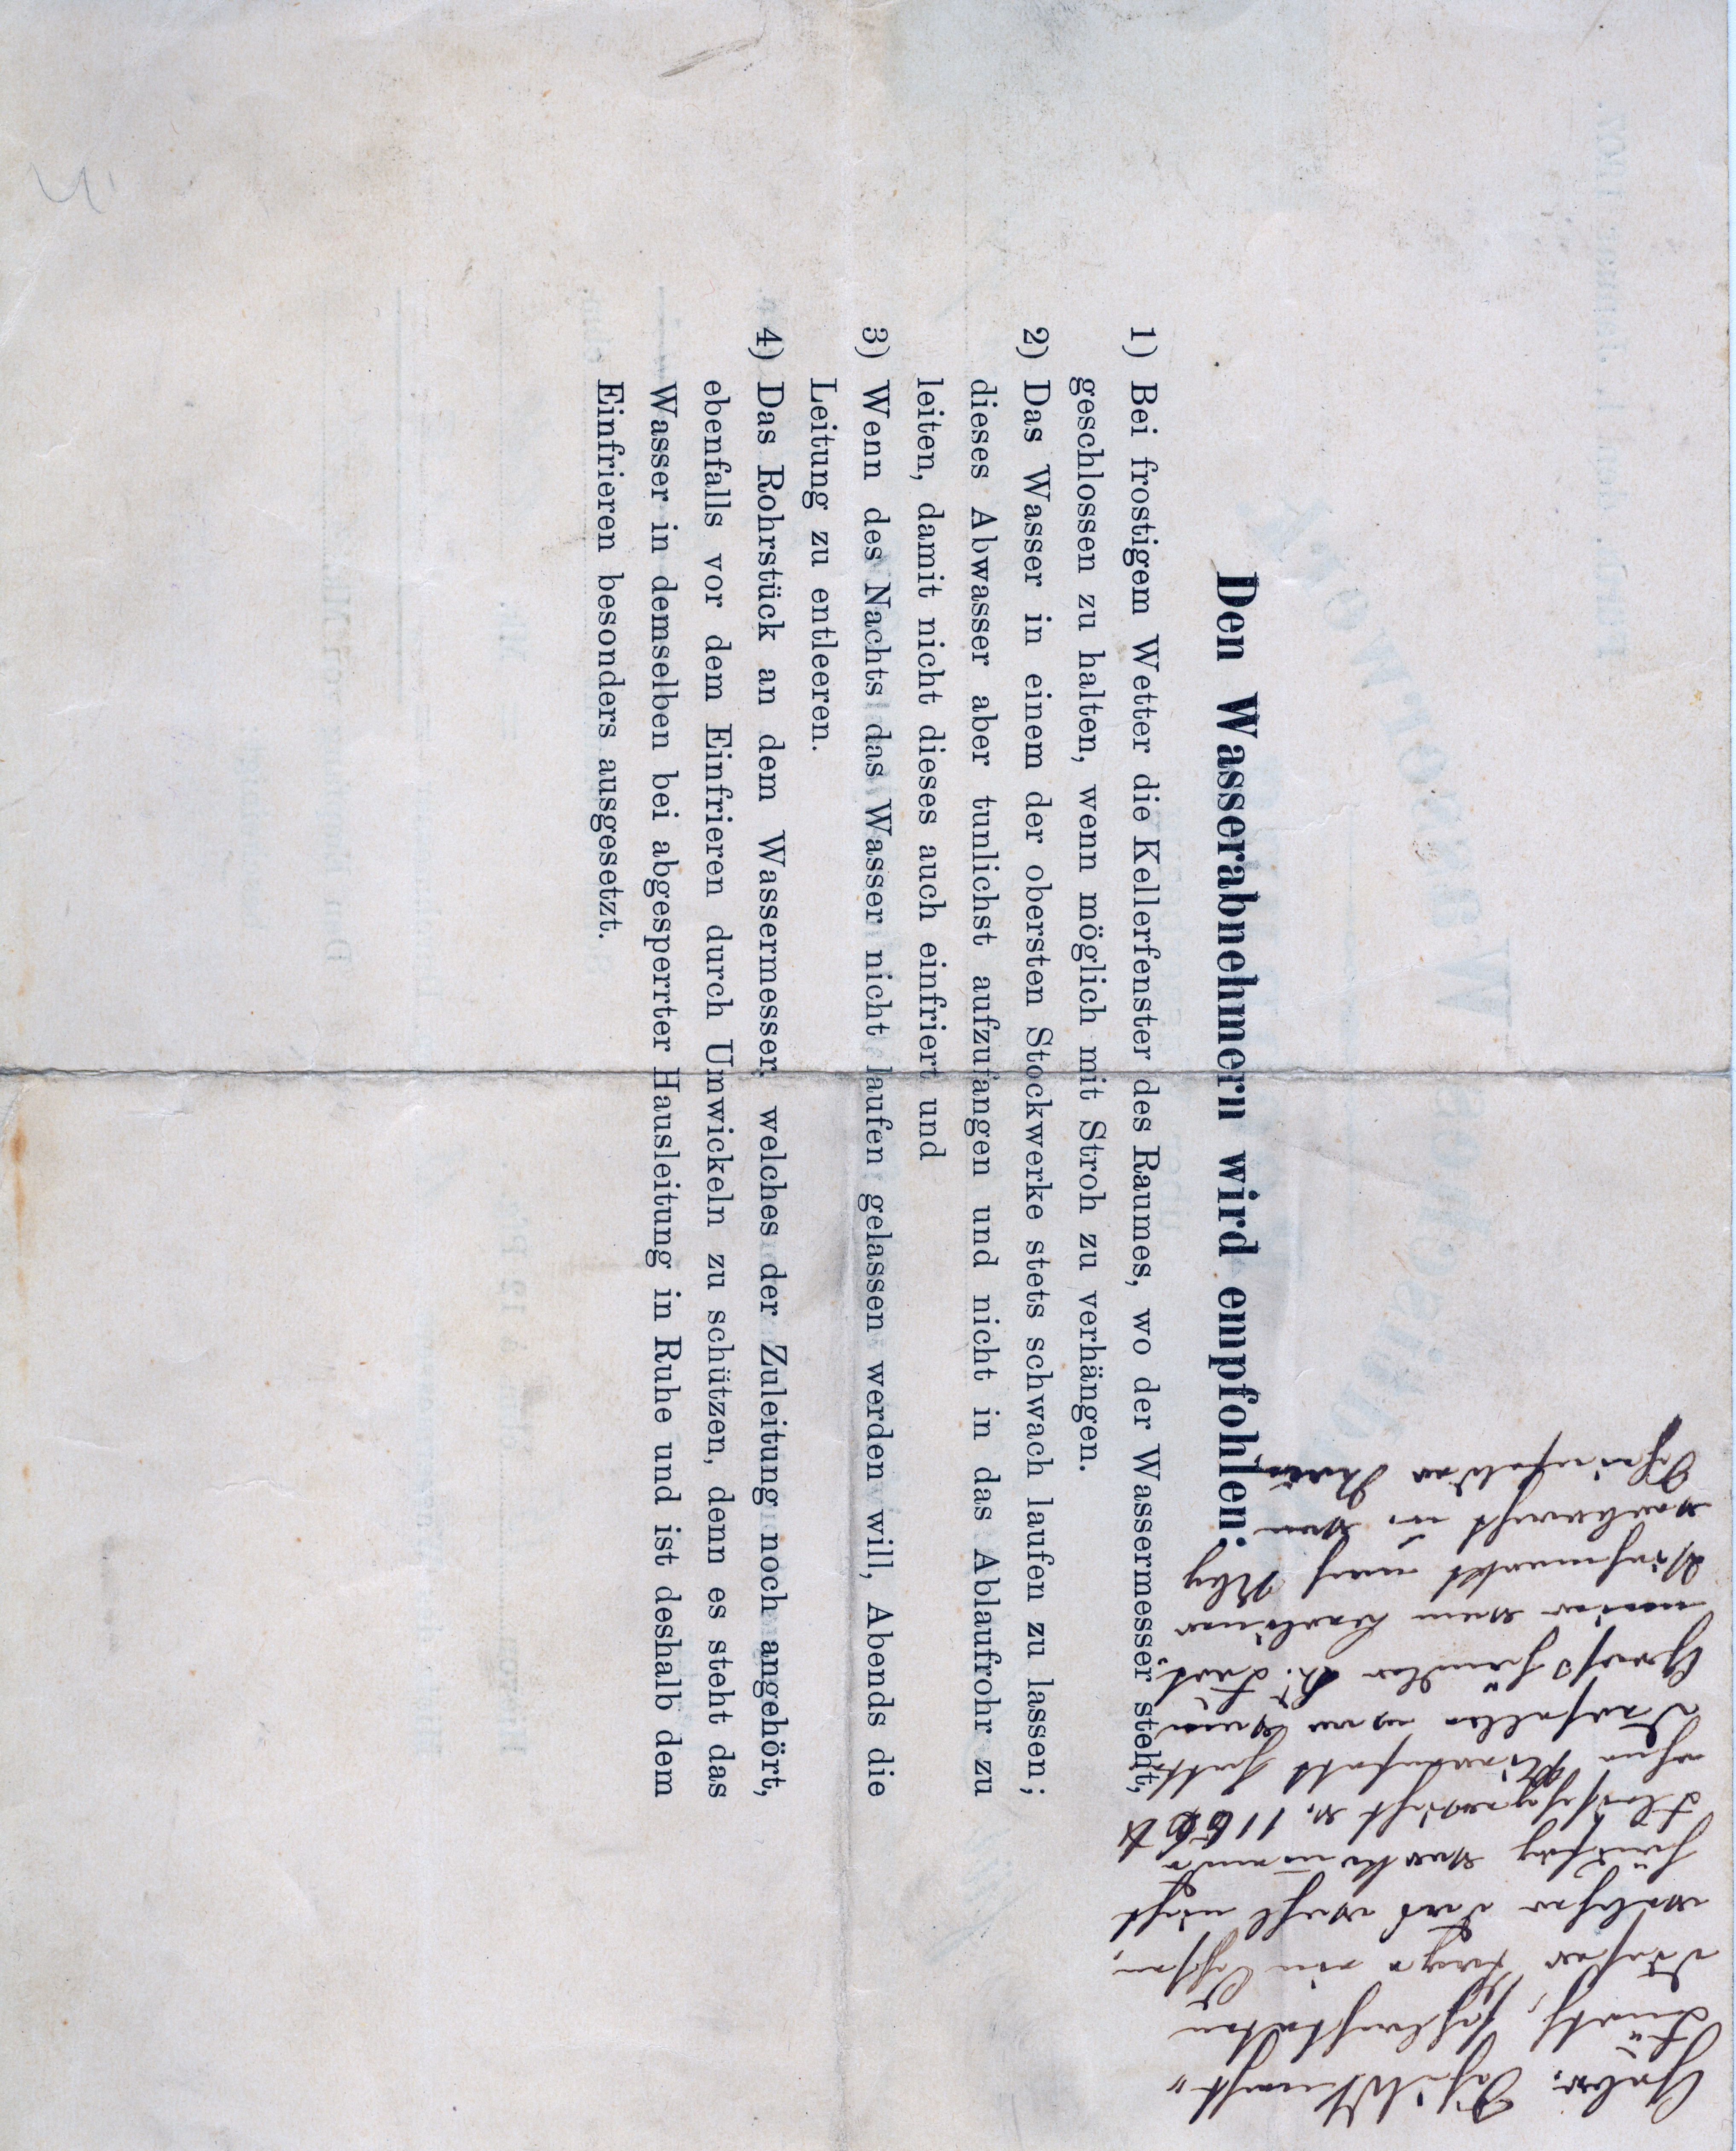 Den Wasserabnehmern wird empfohlen:
1) Bei frostigem Wetter die Kellerfenster des Raumes, wo der Wassermesser steht,
geschlossen zu halten, wenn möglich mit Stroh zu verhängen.
2) Das Wasser in einem der obersten Stockwerke stets schwach laufen zu lassen;
dieses Abwasser aber tunlichst aufzufangen und nicht in das Ablaufrohr zu
leiten, damit nicht dieses auch einfriert und
3) Wenn des Nachts das Wasser nicht laufen gelassen werden will, Abends die
Leitung zu entleeren.
4) Das Rohrstück an dem Wassermesser, welches der Zuleitung noch angehört,
ebenfalls vor dem Einfrieren durch Umwickeln zu schützen, denn es steht das
Wasser in demselben bei abgesperrter Hausleitung in Ruhe und ist deshalb dem
Einfrieren besonders ausgesetzt.
Gebr.
Fürth, schlachteten
dieser Tage ein Ochsen,
welcher das wohl nicht
häufig vorkommende
Fleischgewicht v. 1166 ℔
ohne hatte.
Derselbe war
Großhändler H.
vom Berliner
Viehmarkt nach Nbg
verbracht u. von